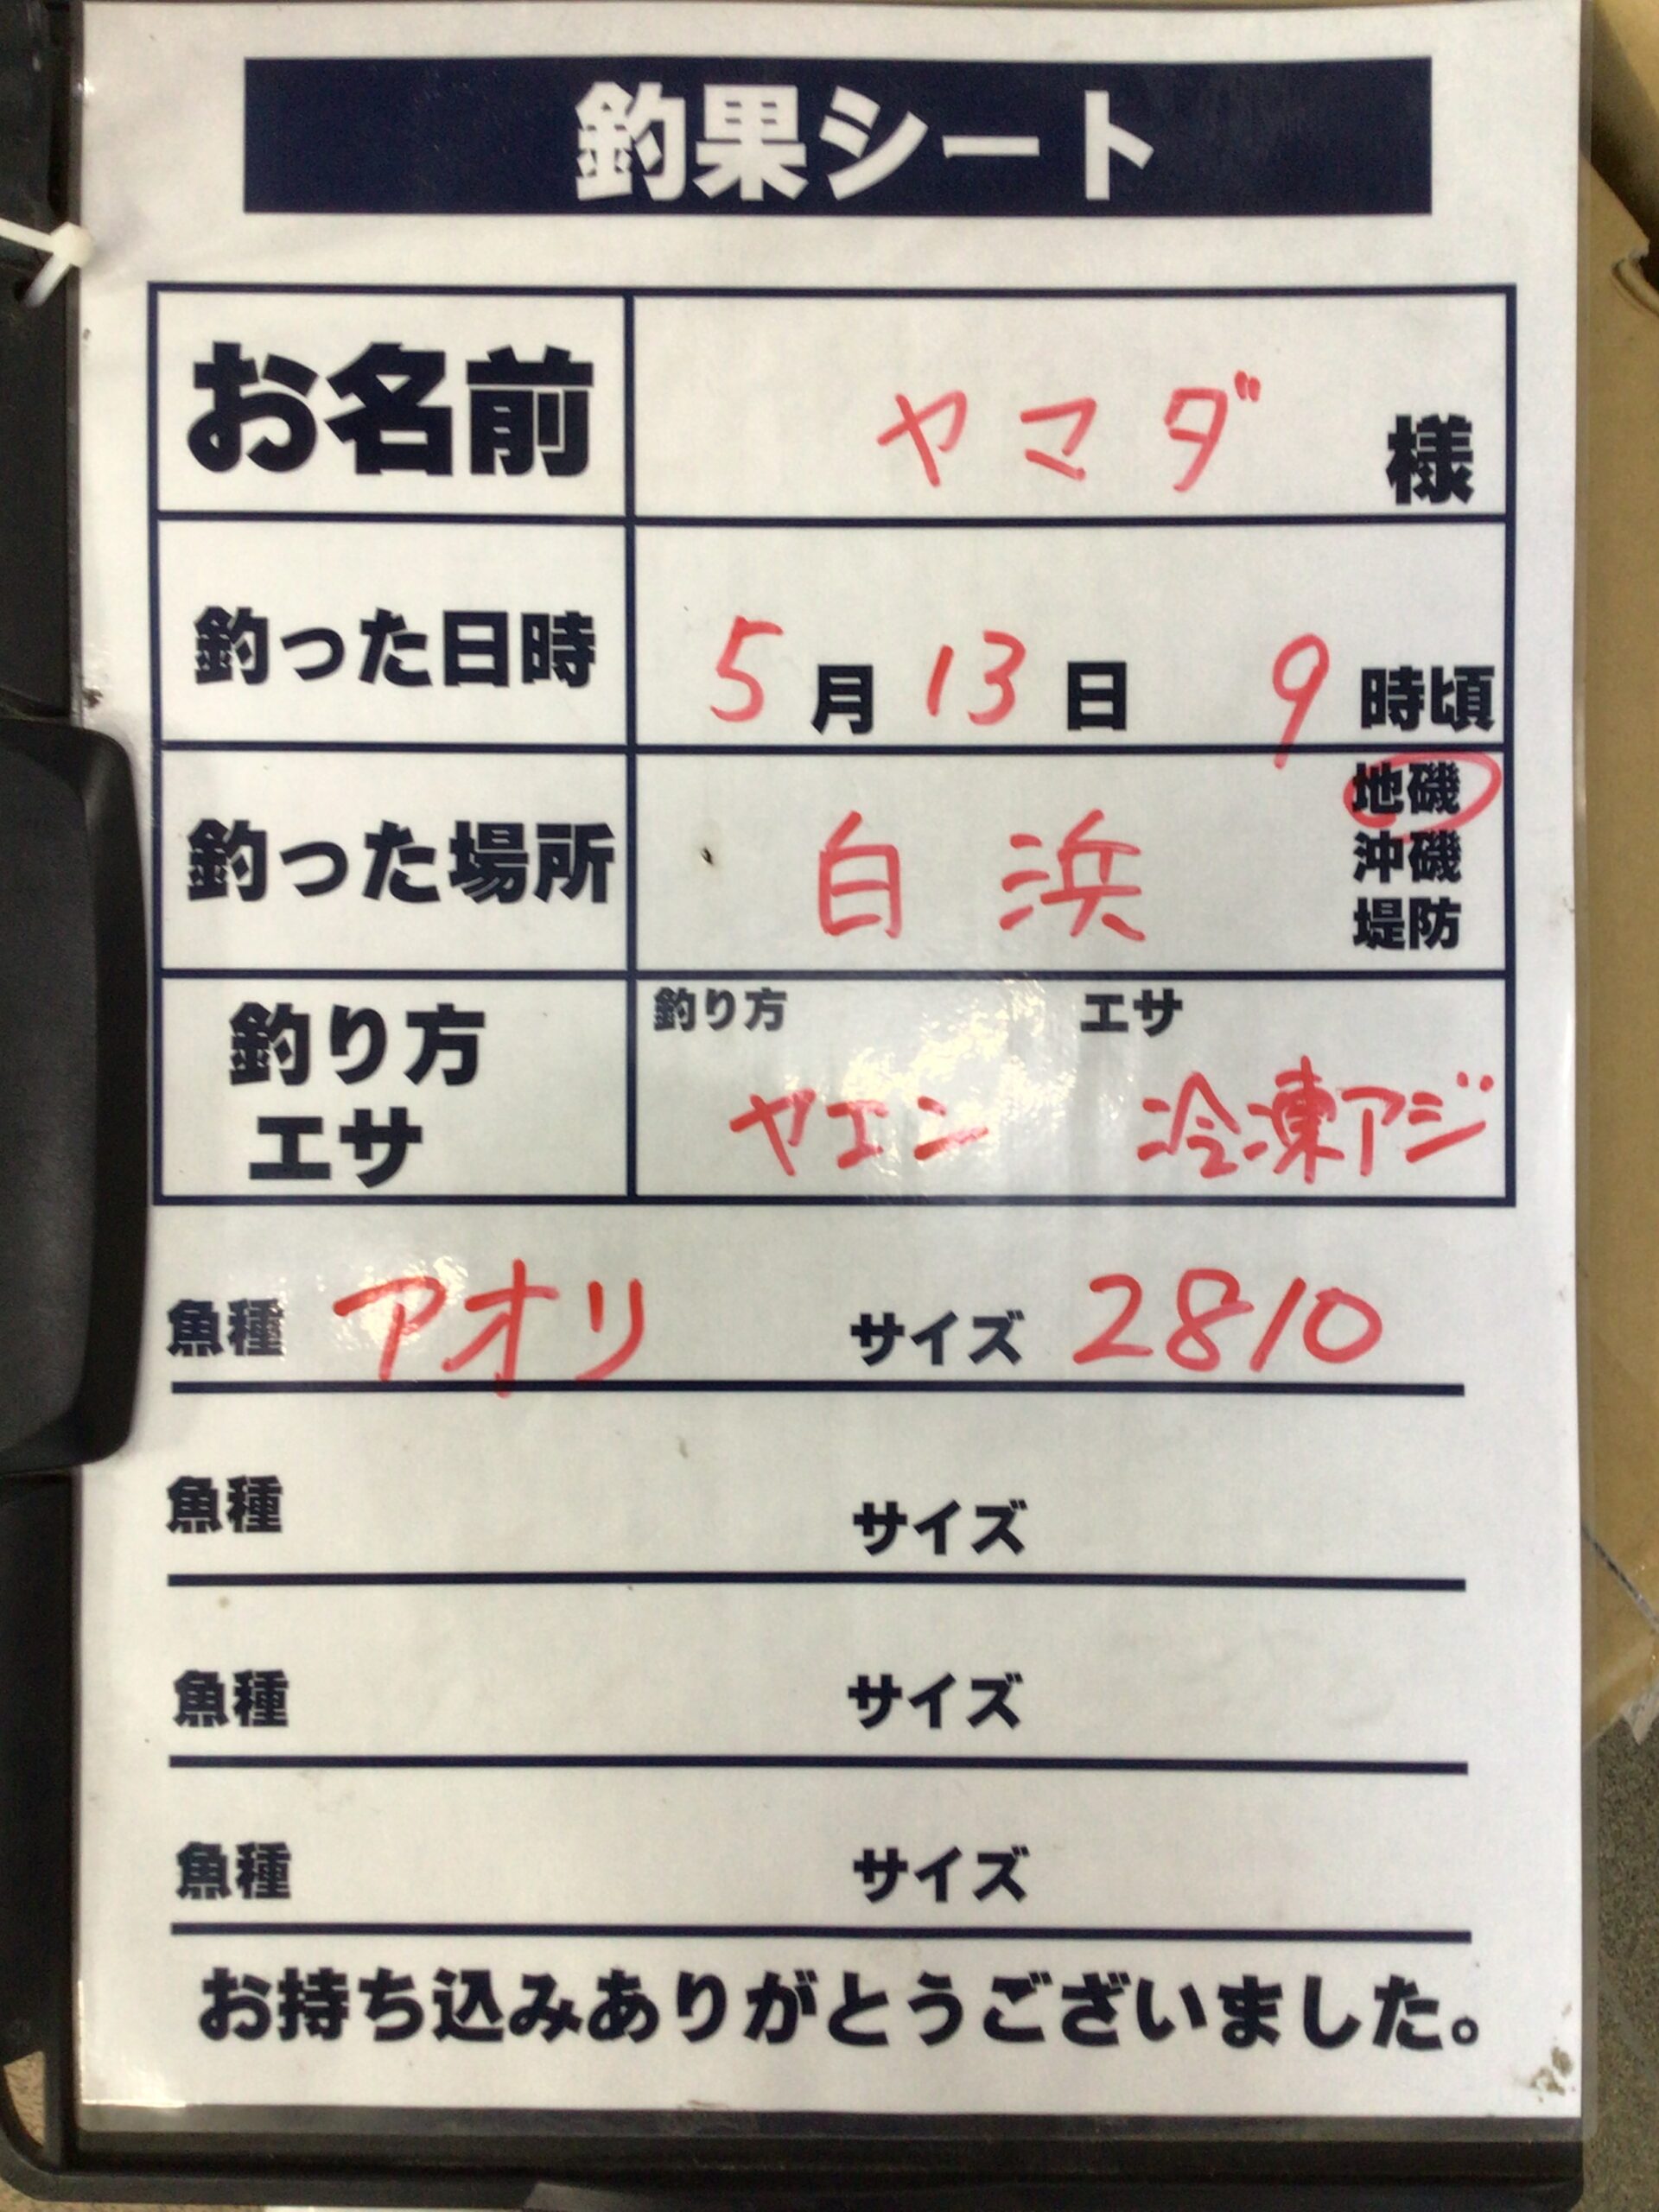 釣果シート
お名前 ヤマダ 様
釣った日時 5月13日 9時頃
釣った場所 白浜 地磯
沖磯
堤防
釣り方
エサ
釣り方 エサ
ヤエン 冷凍アジ
魚種 アオリ サイズ 2810
魚種 サイズ
魚種 サイズ
魚種 サイズ
お持ち込みありがとうございました。